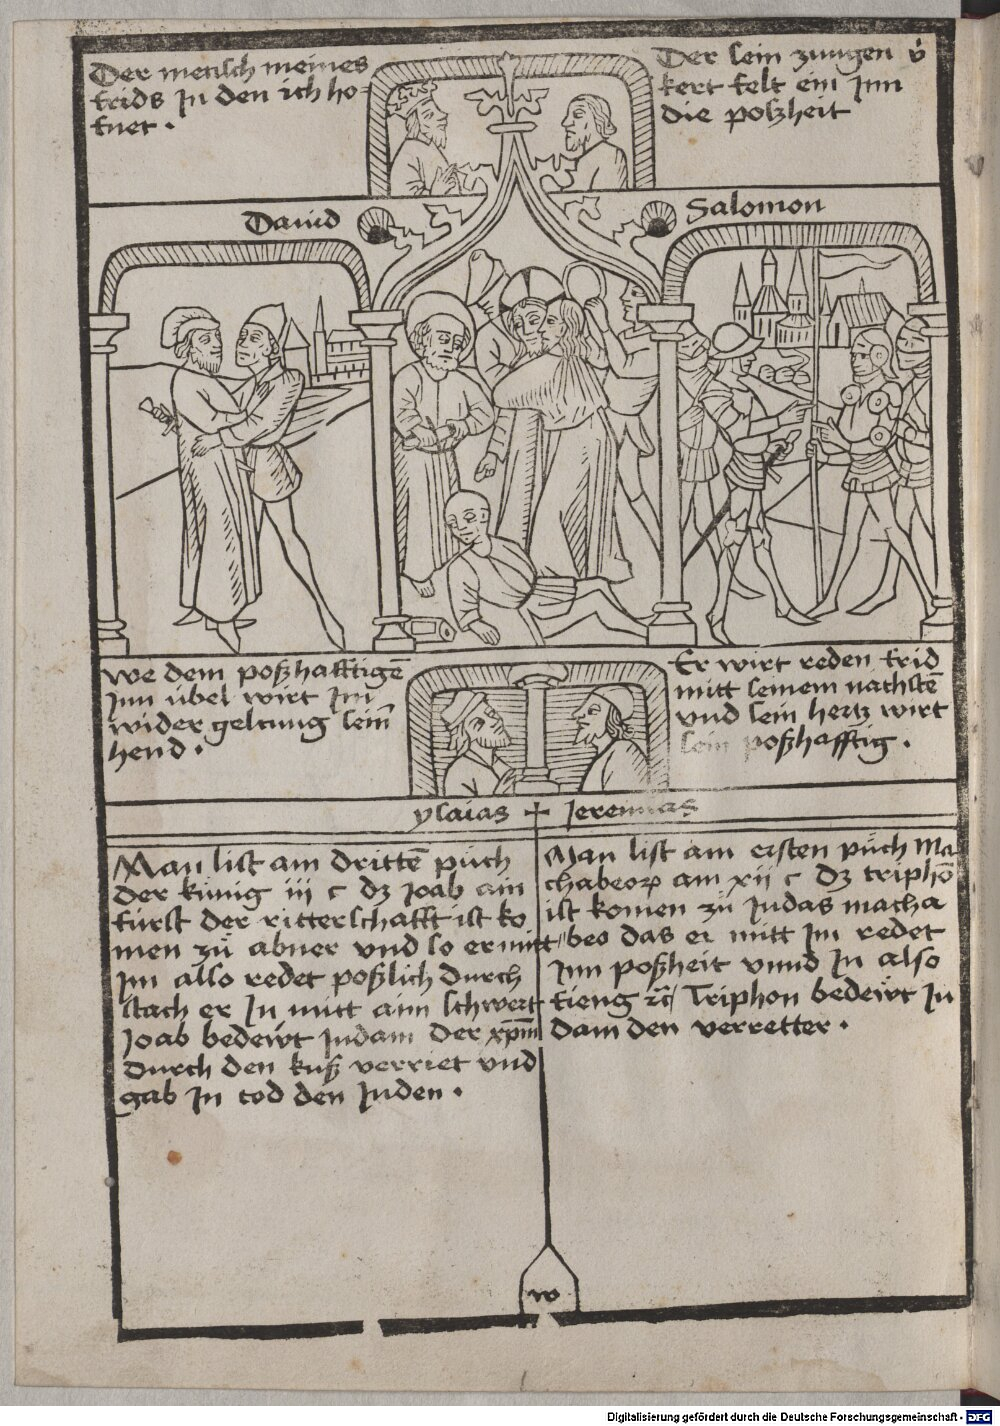 Der mensch meines
frids Jn den ich ho-
ffnet .
Der sein zungen v̊
kert felt ein Jnn
die poßheit
Dauid
Salomon
we dem poßhafftigē
Jnn übel wirt Jm
wider geltung seiñ
hend .
Er wirt reden frid
mitt seinem nachstē
vnd sein hertz wirt
sein poßhafftig .
ysaias + Jeremias
Man list am drittē püch
der künig iii c dz Joab ain
fürst der ritterschafft ist ko
men zü abner vnd so er mitt
Jm also redet poßlich durch
stach er Jn mitt aim schwert
Joab bedewt Judam der xp̄m
durch den kuß verriet vnd
gab Jn tod den Juden .
Man list am ersten püch Ma
chabeoꝝ am xii c dz triphō
ist komen zü Judas macha
beo das er mitt Jm redet
Jnn poßheit vnnd Jn also
fieng ꝛc̄ Triphon bedewt Ju
dam den verretter .
w
Digitalisierung gefördert durch die Deutsche Forschungsgemeinschaft - DFG